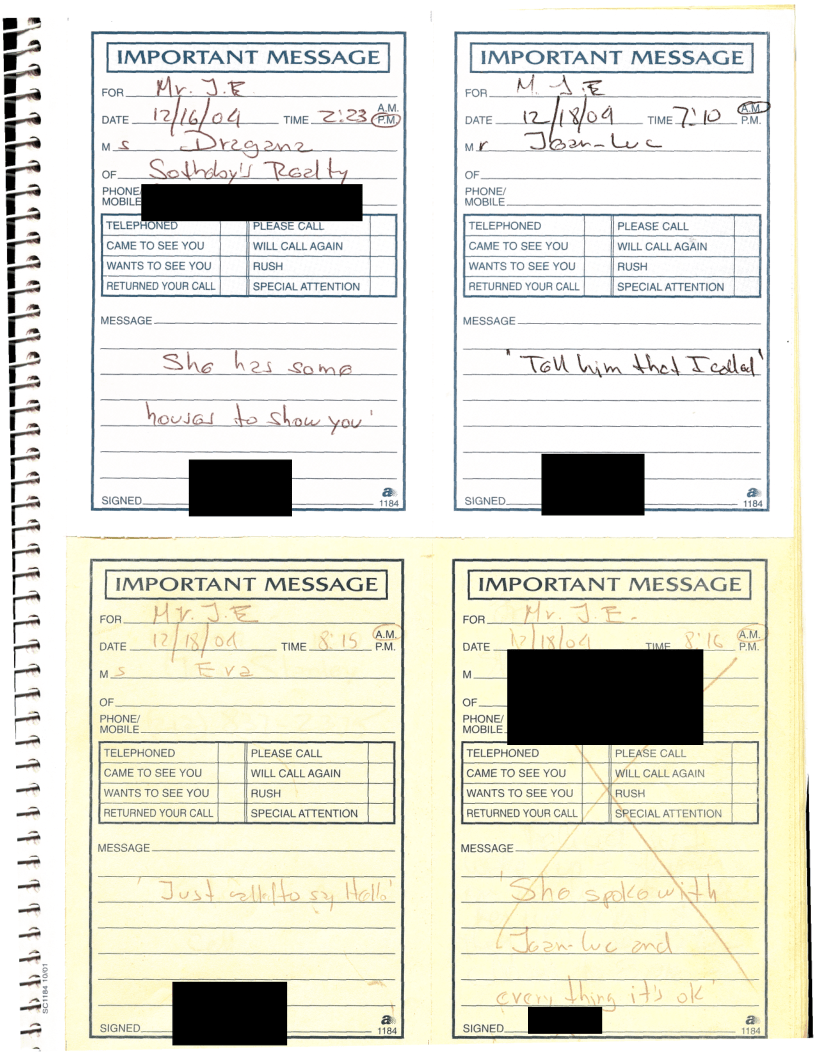 IMPORTANT MESSAGE
FOR Mr. J.E
DATE 12/16/04 TIME 2:23 A.M. P.M.
M s Dragana
OF Sothdby's Realty
PHONE/
MOBILE
TELEPHONED PLEASE CALL
CAME TO SEE YOU WILL CALL AGAIN
WANTS TO SEE YOU RUSH
RETURNED YOUR CALL SPECIAL ATTENTION
MESSAGE
She has some
houses to show you'
SIGNED
a
1184
IMPORTANT MESSAGE
FOR M. J.E
DATE 12/18/04 TIME 7:10 A.M. P.M.
M r Jean-Luc
OF
PHONE/
MOBILE
TELEPHONED PLEASE CALL
CAME TO SEE YOU WILL CALL AGAIN
WANTS TO SEE YOU RUSH
RETURNED YOUR CALL SPECIAL ATTENTION
MESSAGE
"Tell him that I called'
SIGNED
a
1184
IMPORTANT MESSAGE
FOR Mr. J.E
DATE 12/18/04 TIME 8:15 A.M. P.M.
M s Eva
OF
PHONE/
MOBILE
TELEPHONED PLEASE CALL
CAME TO SEE YOU WILL CALL AGAIN
WANTS TO SEE YOU RUSH
RETURNED YOUR CALL SPECIAL ATTENTION
MESSAGE
'Just to say Hello'
SIGNED
a
1184
IMPORTANT MESSAGE
FOR Mr. J.E.
DATE 12/18/04 TIME 8:16 A.M. P.M.
M
OF
PHONE/
MOBILE
TELEPHONED PLEASE CALL
CAME TO SEE YOU WILL CALL AGAIN
WANTS TO SEE YOU RUSH
RETURNED YOUR CALL SPECIAL ATTENTION
MESSAGE
'She spoke with
Jean-Luc and
every thing it's ok'
SIGNED
a
1184
SC1184 10/01